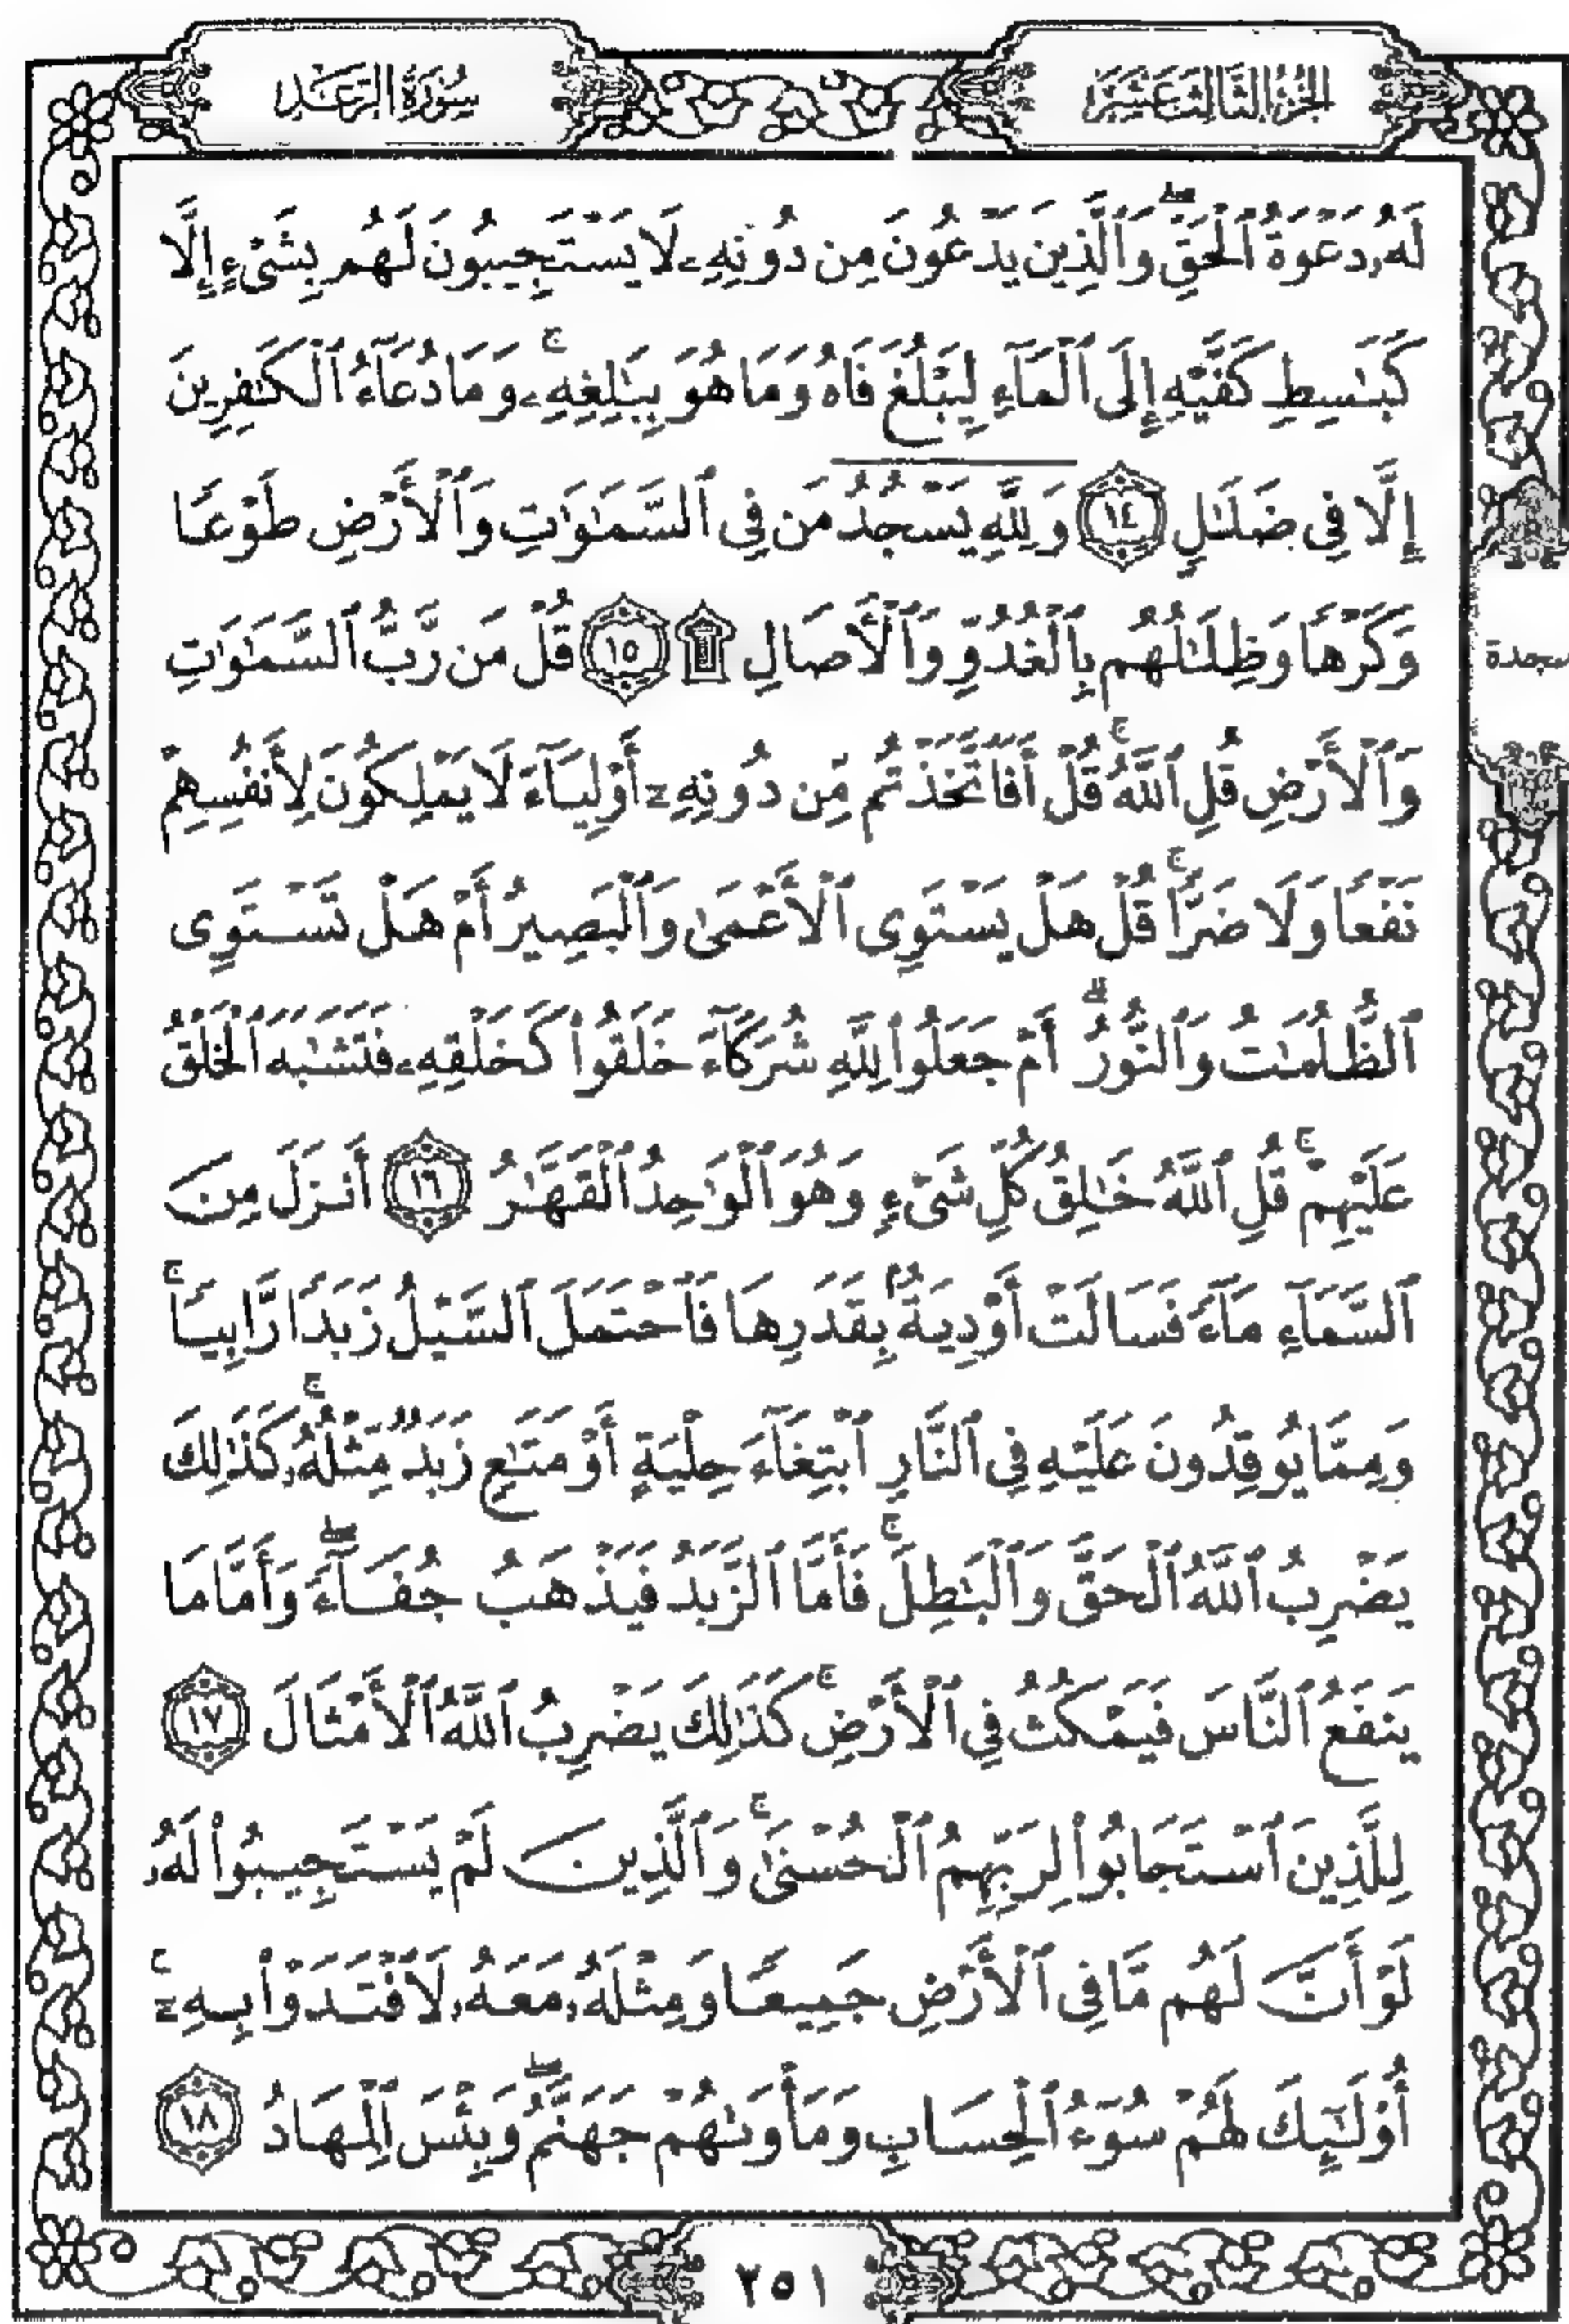 الجزء الثالث عشر
سورة الرعد
لَهُۥ دَعْوَةُ ٱلْحَقِّ ۖ وَٱلَّذِينَ يَدْعُونَ مِن دُونِهِۦ لَا يَسْتَجِيبُونَ لَهُم بِشَىْءٍ إِلَّا
كَبَـٰسِطِ كَفَّيْهِ إِلَى ٱلْمَآءِ لِيَبْلُغَ فَاهُ وَمَا هُوَ بِبَـٰلِغِهِۦ ۚ وَمَا دُعَآءُ ٱلْكَـٰفِرِينَ
إِلَّا فِى ضَلَـٰلٍ ﴿١٤﴾ وَلِلَّهِ يَسْجُدُ مَن فِى ٱلسَّمَـٰوَٰتِ وَٱلْأَرْضِ طَوْعًا
وَكَرْهًا وَظِلَـٰلُهُم بِٱلْغُدُوِّ وَٱلْـَٔاصَالِ ۩ ﴿١٥﴾ قُلْ مَن رَّبُّ ٱلسَّمَـٰوَٰتِ
سجدة
وَٱلْأَرْضِ قُلِ ٱللَّهُ ۚ قُلْ أَفَٱتَّخَذْتُم مِّن دُونِهِۦٓ أَوْلِيَآءَ لَا يَمْلِكُونَ لِأَنفُسِهِمْ
نَفْعًا وَلَا ضَرًّا ۚ قُلْ هَلْ يَسْتَوِى ٱلْأَعْمَىٰ وَٱلْبَصِيرُ أَمْ هَلْ تَسْتَوِى
ٱلظُّلُمَـٰتُ وَٱلنُّورُ ۗ أَمْ جَعَلُوا۟ لِلَّهِ شُرَكَآءَ خَلَقُوا۟ كَخَلْقِهِۦ فَتَشَـٰبَهَ ٱلْخَلْقُ
عَلَيْهِمْ ۚ قُلِ ٱللَّهُ خَـٰلِقُ كُلِّ شَىْءٍ وَهُوَ ٱلْوَٰحِدُ ٱلْقَهَّـٰرُ ﴿١٦﴾ أَنزَلَ مِنَ
ٱلسَّمَآءِ مَآءً فَسَالَتْ أَوْدِيَةٌۢ بِقَدَرِهَا فَٱحْتَمَلَ ٱلسَّيْلُ زَبَدًا رَّابِيًا ۚ
وَمِمَّا يُوقِدُونَ عَلَيْهِ فِى ٱلنَّارِ ٱبْتِغَآءَ حِلْيَةٍ أَوْ مَتَـٰعٍ زَبَدٌ مِّثْلُهُۥ ۚ كَذَٰلِكَ
يَضْرِبُ ٱللَّهُ ٱلْحَقَّ وَٱلْبَـٰطِلَ ۚ فَأَمَّا ٱلزَّبَدُ فَيَذْهَبُ جُفَآءً ۖ وَأَمَّا مَا
يَنفَعُ ٱلنَّاسَ فَيَمْكُثُ فِى ٱلْأَرْضِ ۚ كَذَٰلِكَ يَضْرِبُ ٱللَّهُ ٱلْأَمْثَالَ ﴿١٧﴾
لِلَّذِينَ ٱسْتَجَابُوا۟ لِرَبِّهِمُ ٱلْحُسْنَىٰ ۚ وَٱلَّذِينَ لَمْ يَسْتَجِيبُوا۟ لَهُۥ
لَوْ أَنَّ لَهُم مَّا فِى ٱلْأَرْضِ جَمِيعًا وَمِثْلَهُۥ مَعَهُۥ لَٱفْتَدَوْا۟ بِهِۦٓ ۚ
أُو۟لَـٰٓئِكَ لَهُمْ سُوٓءُ ٱلْحِسَابِ وَمَأْوَىٰهُمْ جَهَنَّمُ ۖ وَبِئْسَ ٱلْمِهَادُ ﴿١٨﴾
٢٥١